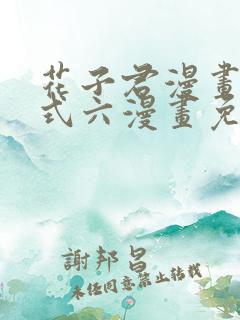 花子君漫畫
式六漫畫免
謝邦昌
未經同意禁止轉載